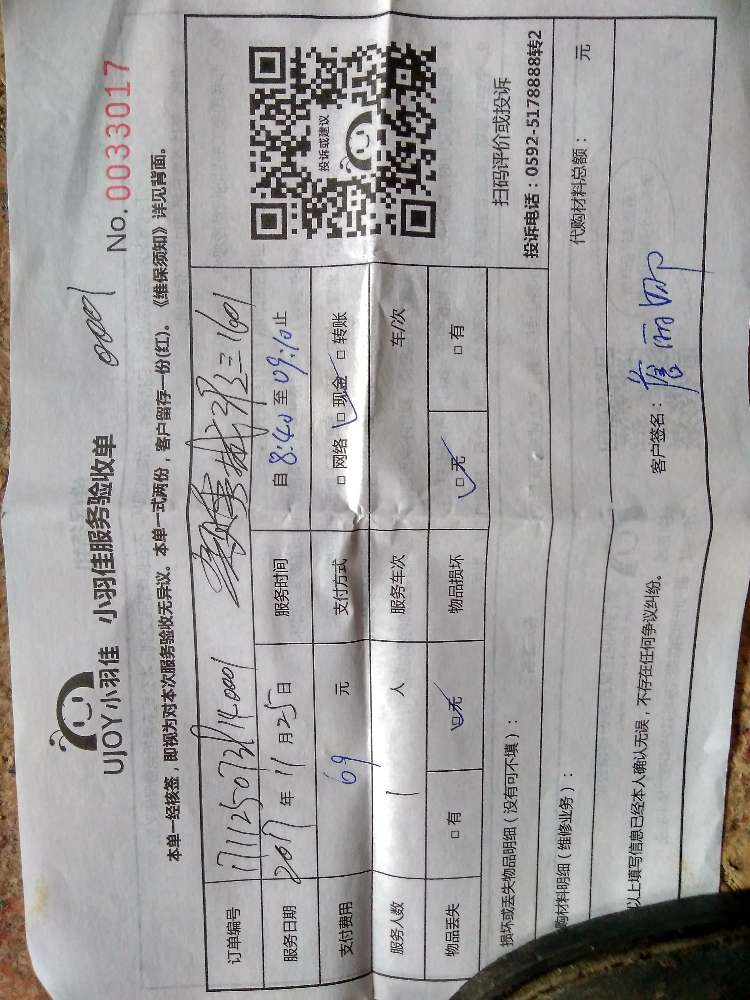 UJOY小羽佳 小羽佳服务验收单 0001 No.0033017
本单一经核签，即视为对本次服务验收无异议。本单一式两份，客户留存一份(红)。《维保须知》详见背面。
订单编号
服务日期 2017年11月25日 服务时间 自8:40至09:10止
支付费用 69 元 支付方式 □网络 ☑现金 □转账
服务人数 1 人 服务车次 车/次
物品丢失 □有 ☑无 物品损坏 ☑无 □有
投诉或建议
扫码评价或投诉
投诉电话：0592-5178888转2
损坏或丢失物品明细（没有可不填）：
购材料明细（维修业务）： 代购材料总额： 元
以上填写信息已经本人确认无误，不存在任何争议纠纷。 客户签名：